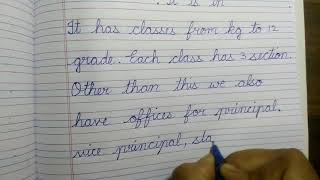 . It is in
It has classes from kg to 12
grade. Each class has 3 section.
Other than this we also
have offices for principal.
vice principal, sta